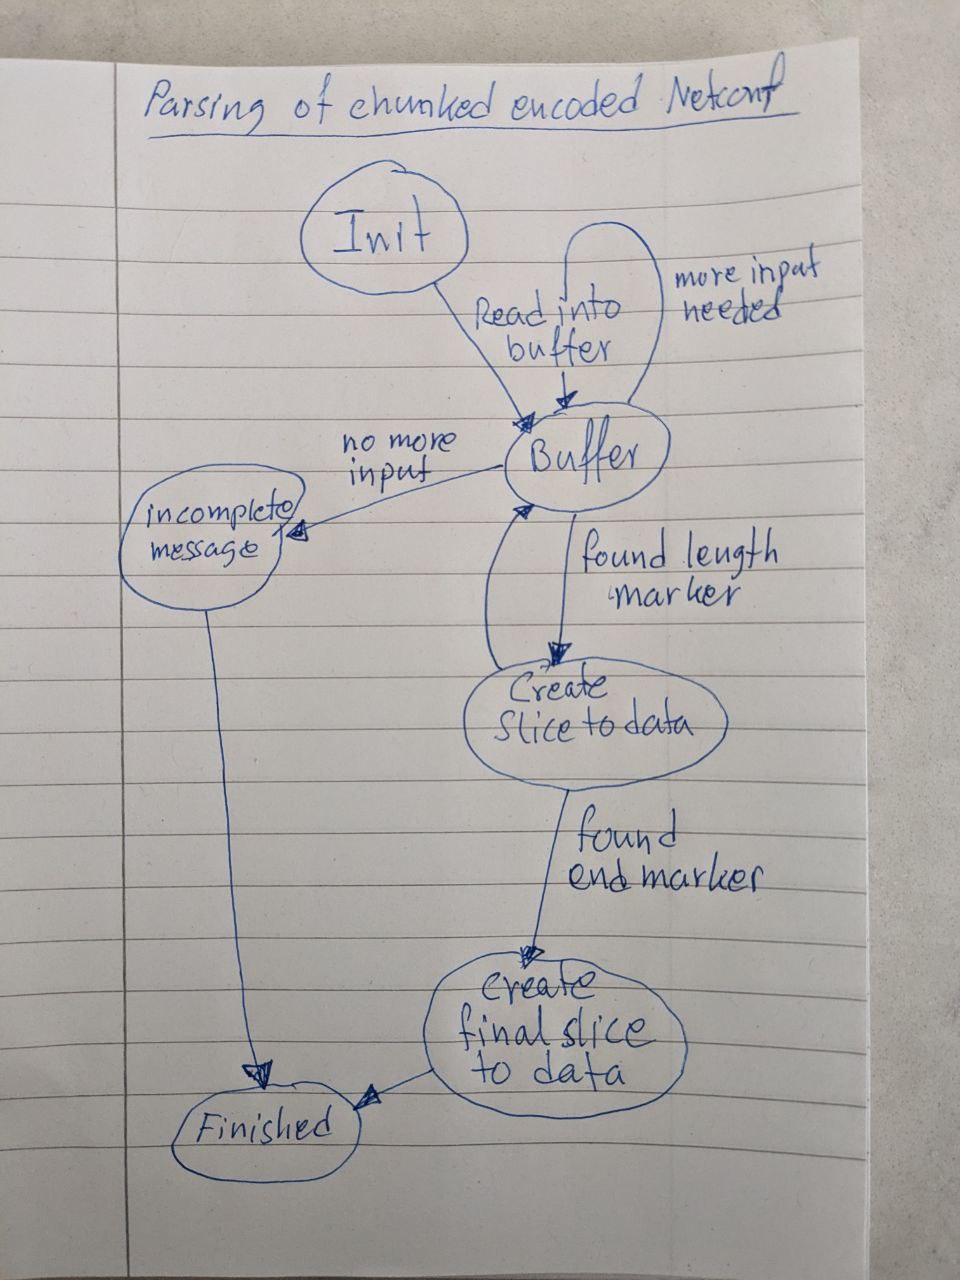 Parsing of chunked encoded Netconf
Init
Read into
buffer
more input
needed
Buffer
no more
input
incomplete
message
found length
marker
Create
slice to data
found
end marker
create
final slice
to data
Finished